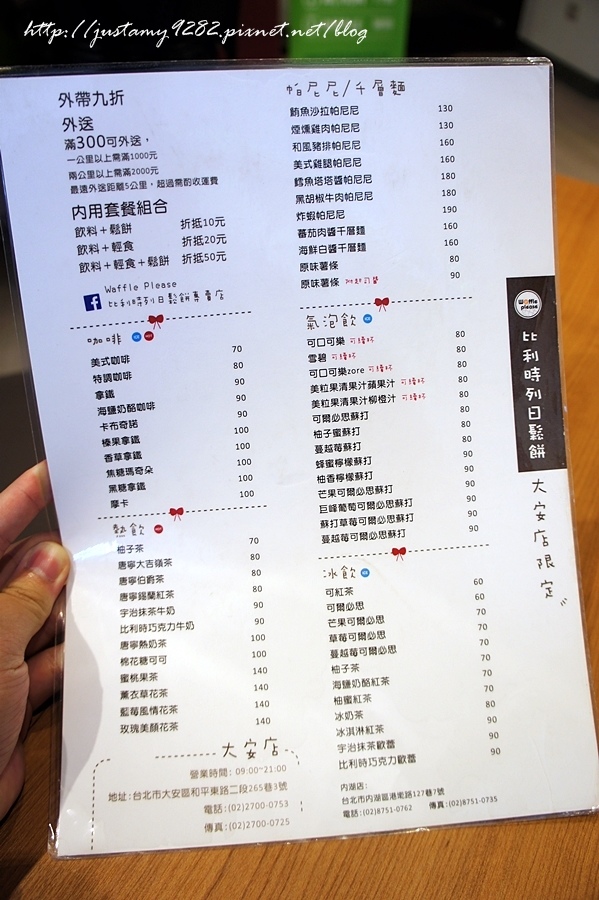 http://justamy9282.pixnet.net/blog
外帶九折
外送
滿300可外送，
一公里以上需滿1000元
兩公里以上需滿2000元
最遠外送距離5公里，超過需酌收運費
內用套餐組合
飲料＋鬆餅 折抵10元
飲料＋輕食 折抵20元
飲料＋輕食＋鬆餅 折抵50元
Waffle Please
比利時列日鬆餅專賣店
咖啡
美式咖啡 70
特調咖啡 80
拿鐵 90
海鹽奶酪咖啡 90
卡布奇諾 90
榛果拿鐵 100
香草拿鐵 100
焦糖瑪奇朵 100
黑糖拿鐵 100
摩卡 100
熱飲
柚子茶 70
唐寧大吉嶺茶 80
唐寧伯爵茶 80
唐寧錫蘭紅茶 80
宇治抹茶牛奶 90
比利時巧克力牛奶 90
唐寧熱奶茶 100
棉花糖可可 100
蜜桃果茶 140
薰衣草花茶 140
藍莓風情花茶 140
玫瑰美顏花茶 140
大安店
營業時間: 09:00~21:00
地址:台北市大安區和平東路二段265巷3號
電話:(02)2700-0753
傳真:(02)2700-0725
帕尼尼/千層麵
鮪魚沙拉帕尼尼 130
煙燻雞肉帕尼尼 160
和風豬排帕尼尼 160
美式雞腿帕尼尼 160
鱈魚塔塔醬帕尼尼 180
黑胡椒牛肉帕尼尼 180
炸蝦帕尼尼 190
蕃茄肉醬千層麵 160
海鮮白醬千層麵 160
原味薯條 80
原味薯條 附起司醬 90
氣泡飲
可口可樂 可續杯 80
雪碧 可續杯 80
可口可樂zore 可續杯 80
美粒果清果汁蘋果汁 可續杯 80
美粒果清果汁柳橙汁 可續杯 80
可爾必思蘇打 80
柚子蜜蘇打 80
蔓越莓蘇打 80
蜂蜜檸檬蘇打 90
柚香檸檬蘇打 90
芒果可爾必思蘇打 90
巨峰葡萄可爾必思蘇打 90
蘇打草莓可爾必思蘇打 90
蔓越莓可爾必思蘇打 90
冰飲
可紅茶 60
可爾必思 60
芒果可爾必思 70
草莓可爾必思 70
蔓越莓可爾必思 70
柚子茶 70
海鹽奶酪紅茶 70
柚蜜紅茶 70
冰奶茶 80
冰淇淋紅茶 90
宇治抹茶歐蕾 90
比利時巧克力歐蕾 90
內湖店:
台北市內湖區港墘路127巷7號
電話:(02)8751-0762 傳真:(02)8751-0735
Waffle please
比利時列日鬆餅
大安店限定